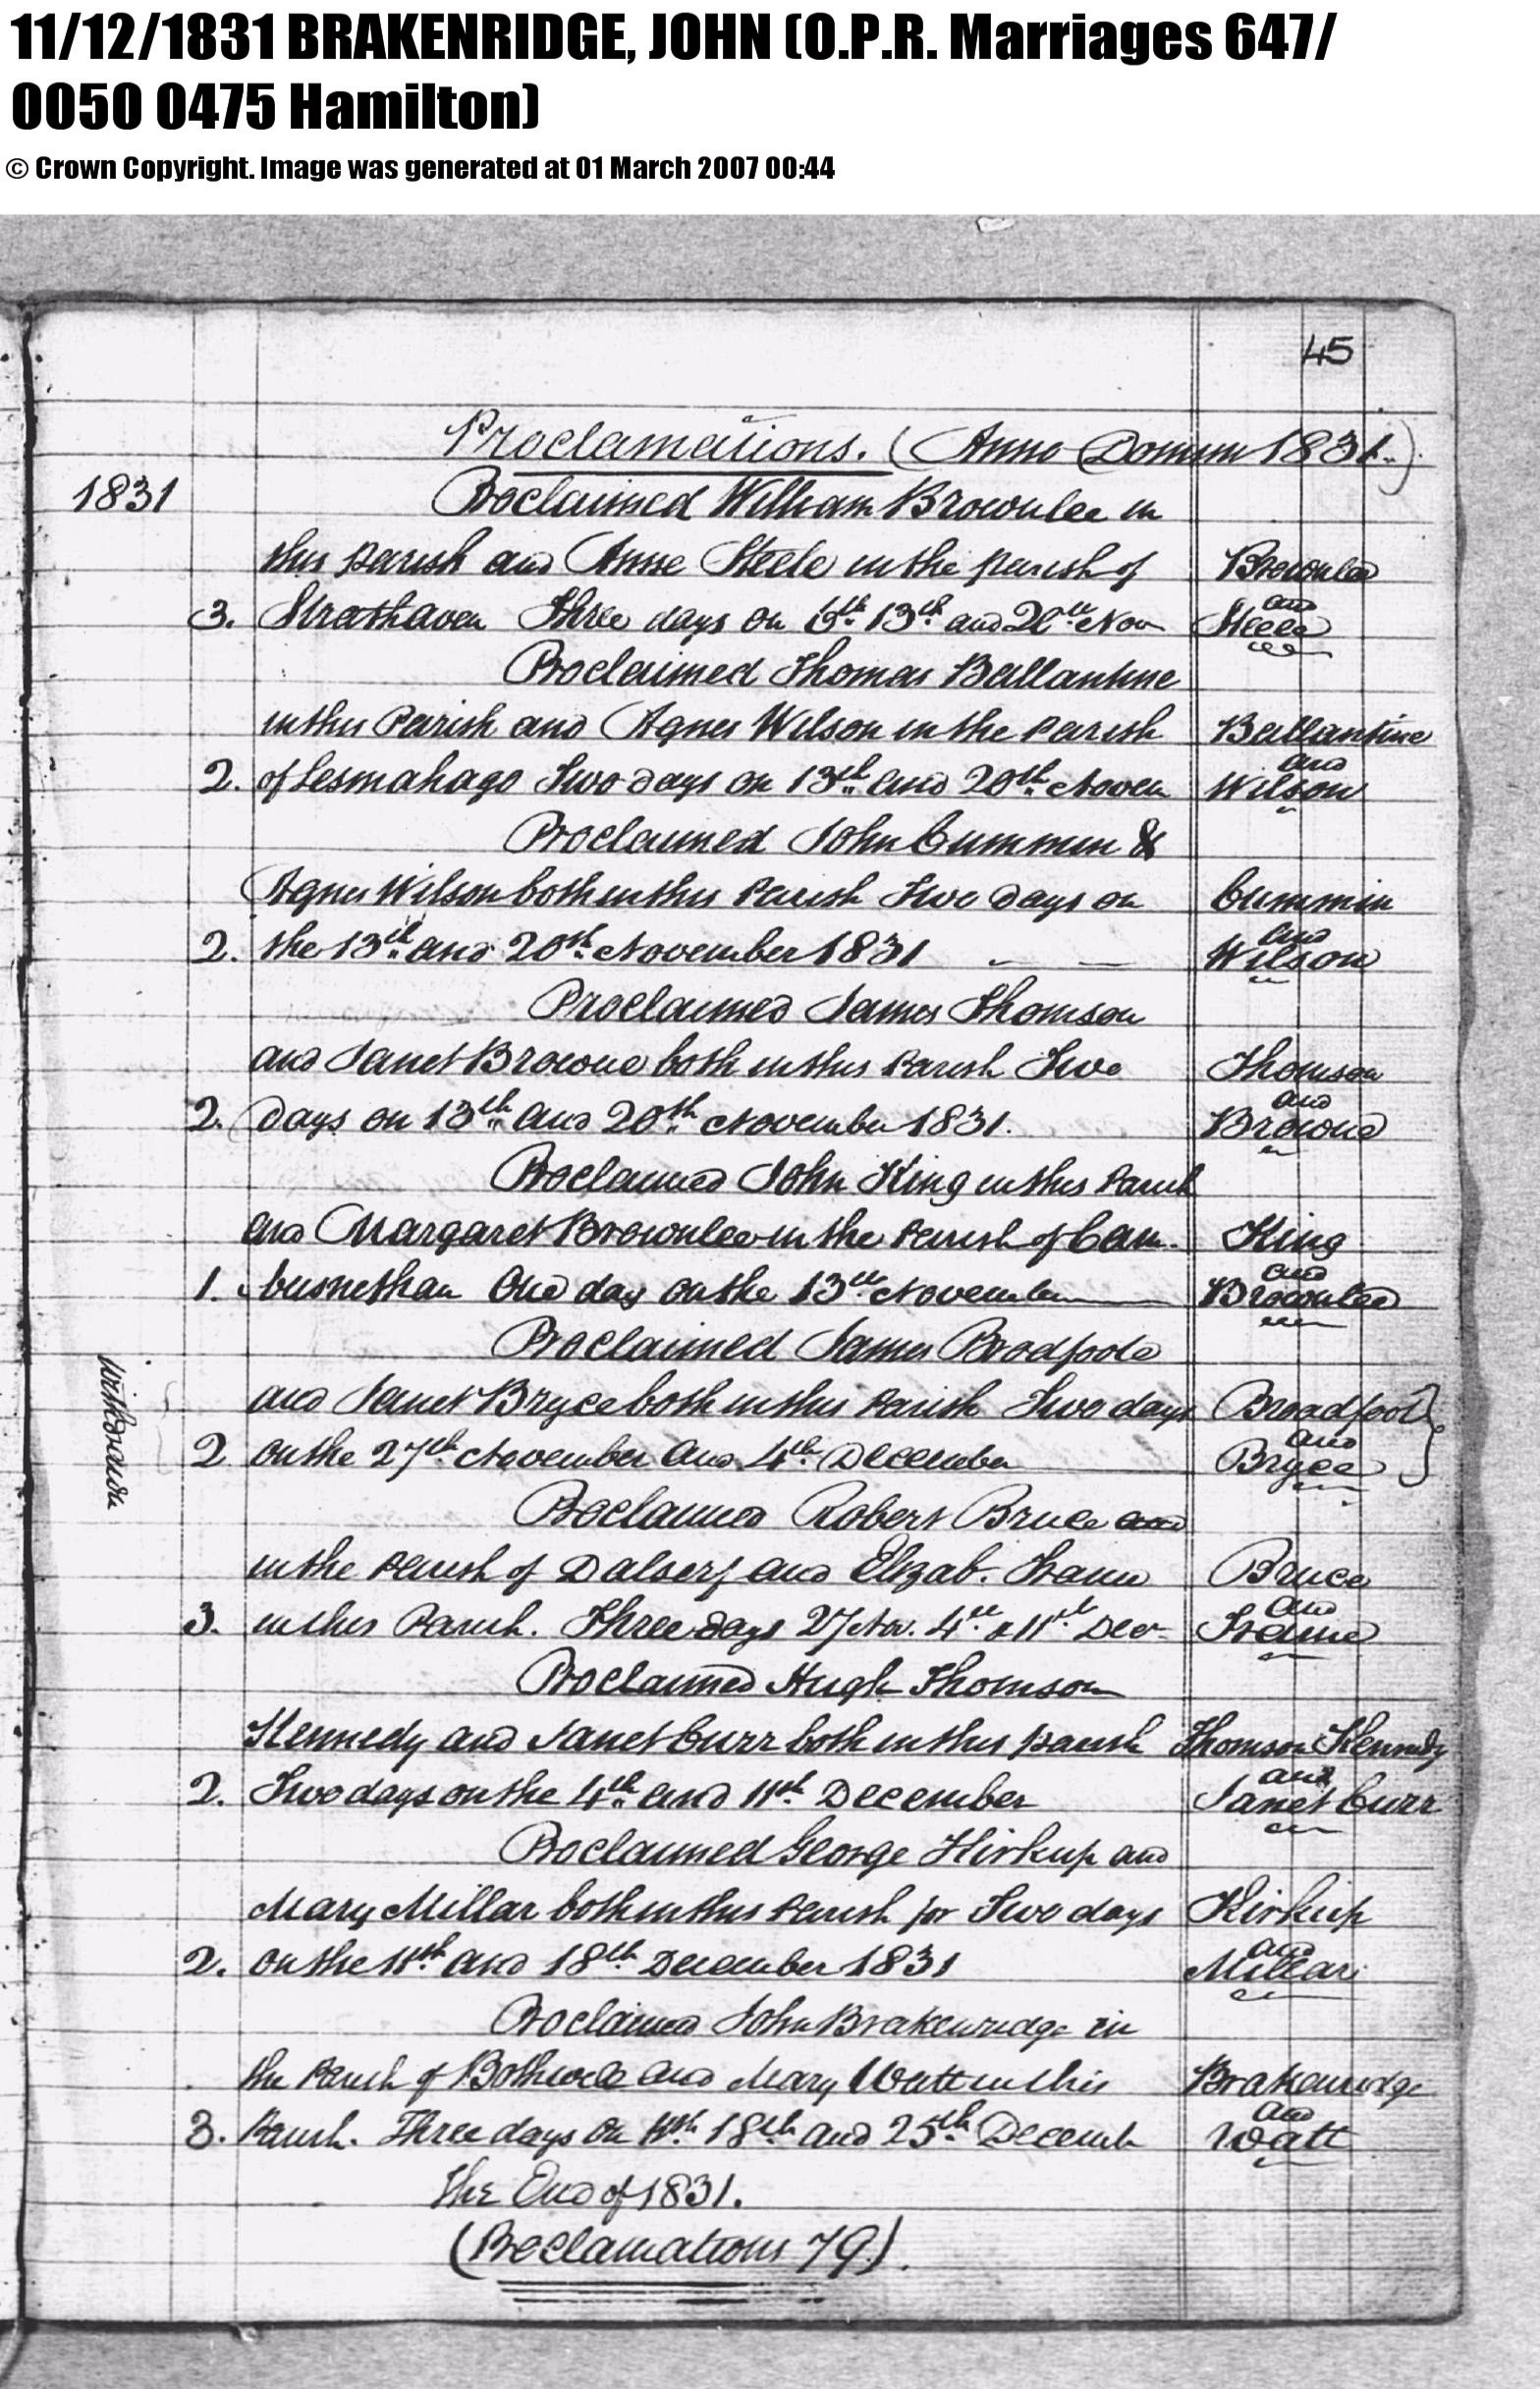 11/12/1831 BRAKENRIDGE, JOHN (O.P.R. Marriages 647/
0050 0475 Hamilton)
© Crown Copyright. Image was generated at 01 March 2007 00:44
45
Proclamations. (Anno Domini 1831.)
1831 Proclaimed William Brownlee in
this parish and Anne Steele in the parish of Brownlee
and
3. Strathaven Three days on 6th. 13th. and 20th Nov Steele
Proclaimed Thomas Ballantine
in this Parish and Agnes Wilson in the Parish Ballantine
and
2. of Lesmahago Two days on 13th and 20th. Novem Wilson
Proclaimed John Cummin &
Agnes Wilson both in this Parish Two days on Cummin
and
2. the 13th and 20th. November 1831 Wilson
Proclaimed James Thomson
and Janet Browne both in this Parish Two Thomson
and
2. days on 13th and 20th November 1831. Browne
Proclaimed John King in this Parish
and Margaret Brownlee in the Parish of Cam- King
and
1. busnethan One day on the 13th November Brownlee
Proclaimed James Brodfoote
and Janet Bryce both in this Parish Two days Broadfoot
and
2 on the 27th November and 4th December Bryce
withdrawn
Proclaimed Robert Bruce and
in the Parish of Dalserf and Elizab. Frame Bruce
and
3. in this Parish. Three days 27 Nov. 4th & 11th Decr. Frame
Proclaimed Hugh Thomson
Kennedy and Janet Curr both in this parish Thomson Kennedy
and
2. Two days on the 4th and 11th December Janet Curr
Proclaimed George Kirkup and
Mary Millar both in this Parish for Two days Kirkup
and
2. on the 11th and 18th December 1831 Millar
Proclaimed John Brakenridge in
the Parish of Bothwell and Mary Watt in this Brakenridge
and
3. Parish. Three days on 11th 18th and 25th Decemb Watt
The End of 1831.
(Proclamations 79).